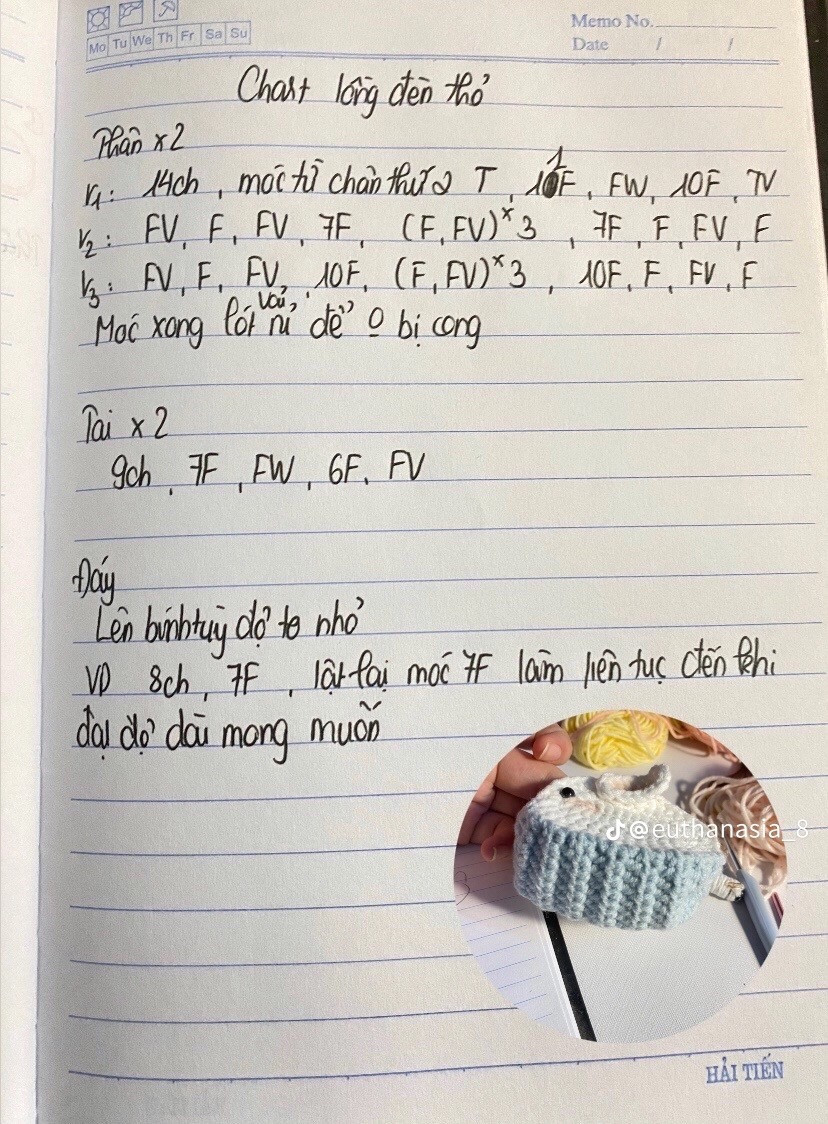 Mo Tu We Th Fr Sa Su
Memo No.
Date / /
Chart lồng đèn thỏ
Thân x2
r1: 14ch, móc từ chân thứ 2 T, 11F, FW, 10F, TV
r2: FV, F, FV, 7F, (F, FV)x3, 7F, F, FV, F
r3: FV, F, FV, 10F, (F, FV)x3, 10F, F, FV, F
Móc xong lót vải, nỉ để 0 bị cong
Tai x2
9ch, 7F, FW, 6F, FV
Đáy
Lên bính tuỳ độ to nhỏ
VD 8ch, 7F, lật lại móc 7F làm liên tục đến khi
đạt độ dài mong muốn
@euthanasia_8
HẢI TIẾN